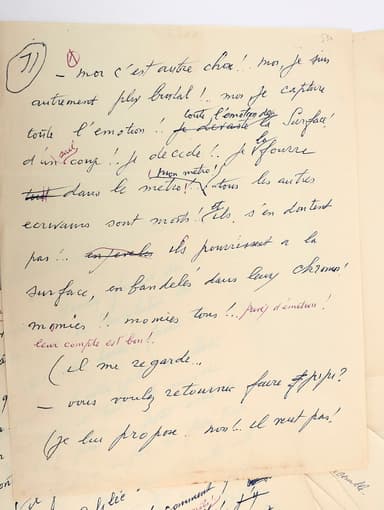 11)
— moi c'est autre chose! moi, je suis
autrement plus brutal! moi je capture
toute l'émotion!! je dévaste toute l'émotion de la surface!
d'un seul coup!. je décide!. je la fourre
tout dans le métro! (mon métro! tous les autres
écrivains sont morts! Et ils s'en doutent
pas!.. ils pourrissent à la
surface, en bandelés dans leurs chromos!
momies!. momies tous!.. privés d'émotion!
leur compte est bon!.
(il me regarde..
— vous voulez retourner faire pipi?
(je lui propose.. non!.. il veut pas!
comment